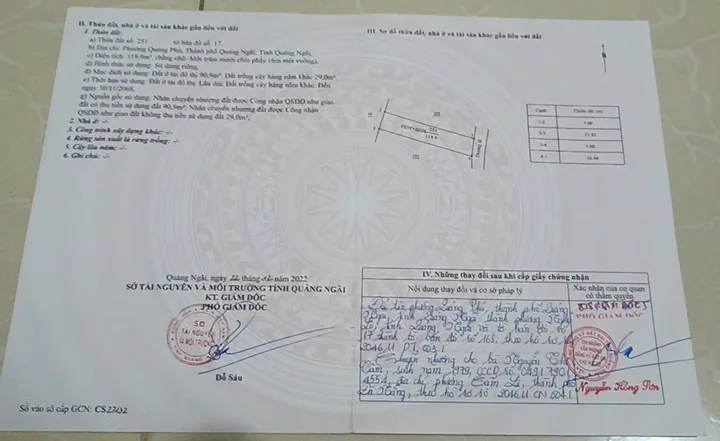 II. Thửa đất, nhà ở và tài sản khác gắn liền với đất
1. Thửa đất:
a) Thửa đất số: 251 , tờ bản đồ số: 17,
b) Địa chỉ: Phường Quảng Phú, Thành phố Quảng Ngãi, Tỉnh Quảng Ngãi,
c) Diện tích: 119,9m², (bằng chữ: Một trăm mười chín phẩy chín mét vuông),
d) Hình thức sử dụng: Sử dụng riêng,
đ) Mục đích sử dụng: Đất ở tại đô thị 90,9m²; Đất trồng cây hàng năm khác 29,0m²,
e) Thời hạn sử dụng: Đất ở tại đô thị: Lâu dài; Đất trồng cây hàng năm khác: Đến
ngày 30/11/2068,
g) Nguồn gốc sử dụng: Nhận chuyển nhượng đất được Công nhận QSDĐ như giao
đất có thu tiền sử dụng đất 90,9m²; Nhận chuyển nhượng đất được Công nhận
QSDĐ như giao đất không thu tiền sử dụng đất 29,0m²,
2. Nhà ở: -/-
3. Công trình xây dựng khác: -/-
4. Rừng sản xuất là rừng trồng: -/-
5. Cây lâu năm: -/-
6. Ghi chú: -/-
Quảng Ngãi, ngày tháng năm 2022
SỞ TÀI NGUYÊN VÀ MÔI TRƯỜNG TỈNH QUẢNG NGÃI
KT. GIÁM ĐỐC
PHÓ GIÁM ĐỐC
SỞ
TÀI NGUYÊN
VÀ MÔI TRƯỜNG
Đỗ Sâu
Số vào sổ cấp GCN: CS
III. Sơ đồ thửa đất, nhà ở và tài sản khác gắn liền với đất
Cạnh
1-2 5.00
2-3
3-4 5.00
4-1
IV. Những thay đổi sau khi cấp giấy chứng nhận
Nội dung thay đổi và cơ sở pháp lý
Xác nhận của cơ quan
có thẩm quyền
phường Quảng Phú, thành phố Quảng
Ngãi, tỉnh Quảng Ngãi thành phường Nghĩa
Lộ, tỉnh Quảng Ngãi và tờ bản đồ số
17 thành tờ bản đồ số 168, theo hồ sơ số
Chuyển nhượng cho bà Nguyễn Thị
Cẩm, sinh năm 1979, CCCD số
địa chỉ phường Cẩm Lệ, thành phố
Đà Nẵng, theo hồ sơ số
PHÓ GIÁM ĐỐC
CHI NHÁNH
VĂN PHÒNG
Nguyễn Hồng Sơn